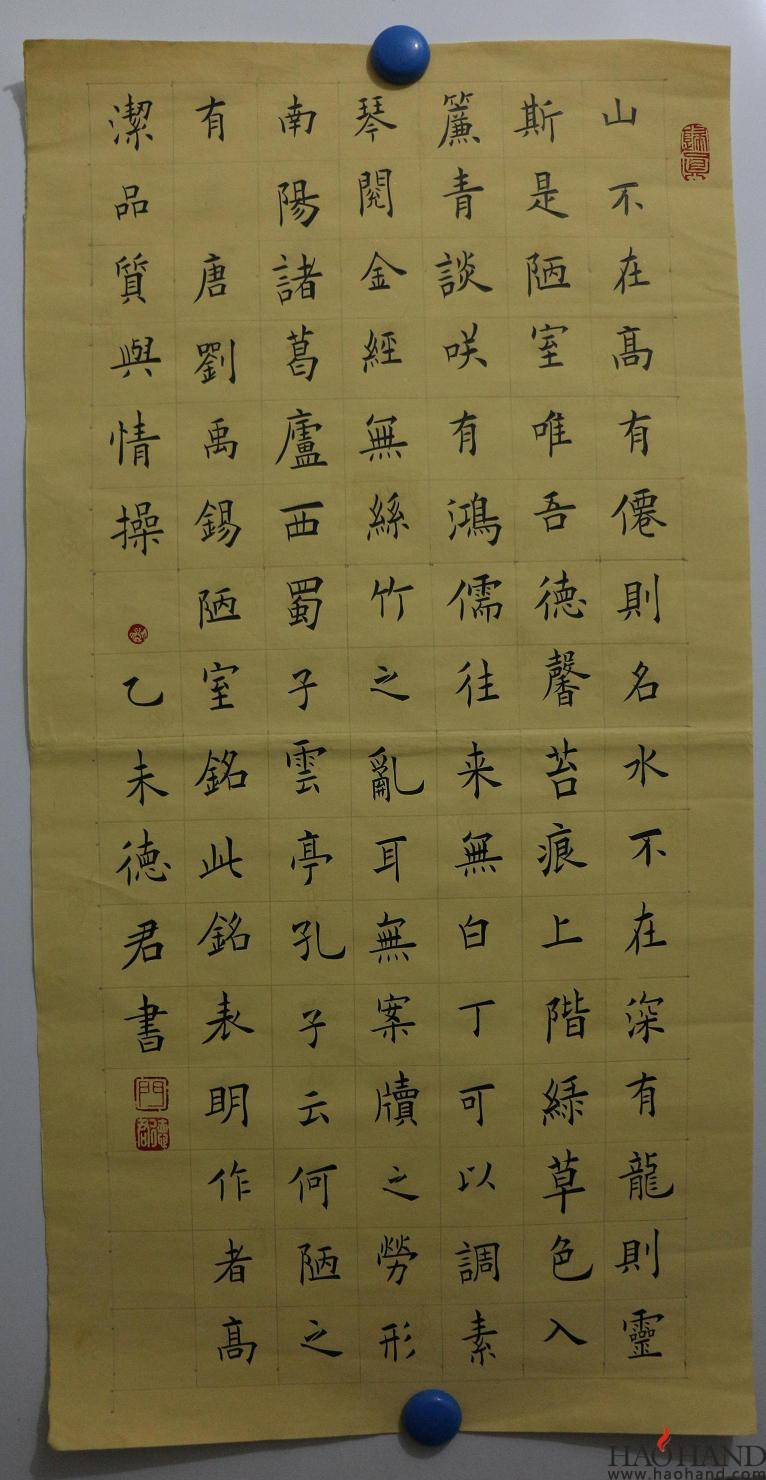 山不在高有僊則名水不在深有龍則靈
斯是陋室唯吾德馨苔痕上階緑草色入
簾青談咲有鴻儒往来無白丁可以調素
琴閲金經無絲竹之亂耳無案牘之勞形
南陽諸葛廬西蜀子雲亭孔子云何陋之
有 唐劉禹錫陋室銘此銘表明作者高
潔品質與情操 乙未德君書
HAOHAND
www.haohand.com